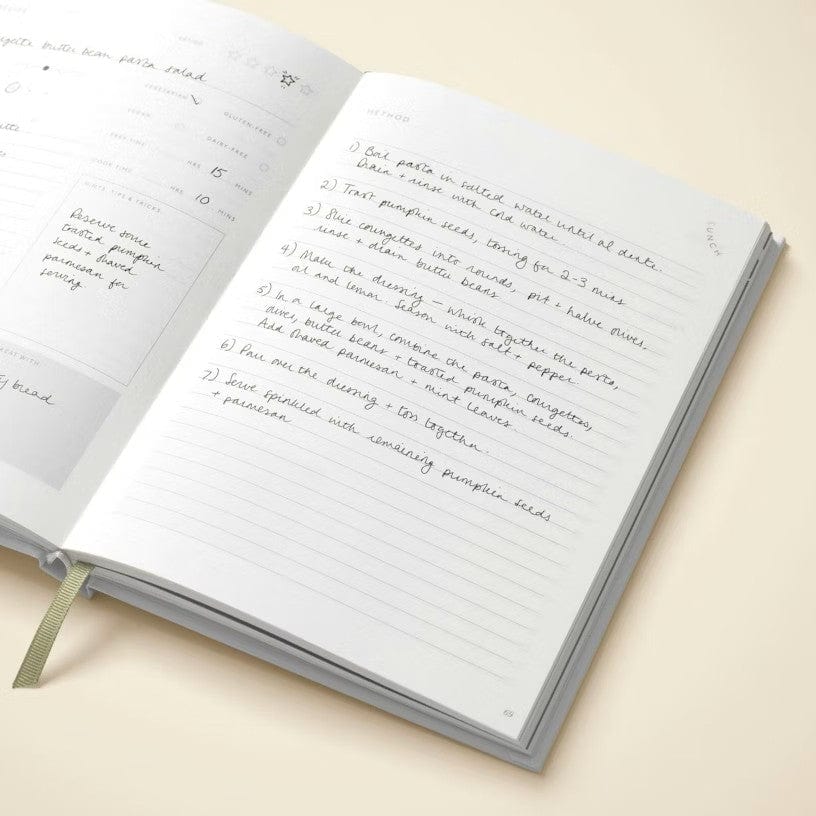 RECIPE
butter bean pasta salad
RATING
VEGETARIAN
GLUTEN-FREE
VEGAN
DAIRY-FREE
PREP TIME
HRS 15 MINS
COOK TIME
HRS 10 MINS
HINTS, TIPS & TRICKS
Reserve some
toasted pumpkin
seeds + shaved
parmesan for
serving
GREAT WITH
bread
METHOD
1) Boil pasta in salted water until al dente.
Drain + rinse with cold water.
2) Toast pumpkin seeds, tossing for 2-3 mins
3) Slice courgettes into rounds, pit + halve olives,
rinse + drain butter beans
4) Make the dressing – whisk together the pesto,
oil and lemon. Season with salt + pepper.
5) In a large bowl, combine the pasta, courgettes,
olives, butter beans + toasted pumpkin seeds.
Add shaved parmesan + mint leaves.
6) Pour over the dressing + toss together.
7) Serve sprinkled with remaining pumpkin seeds
+ parmesan
LUNCH